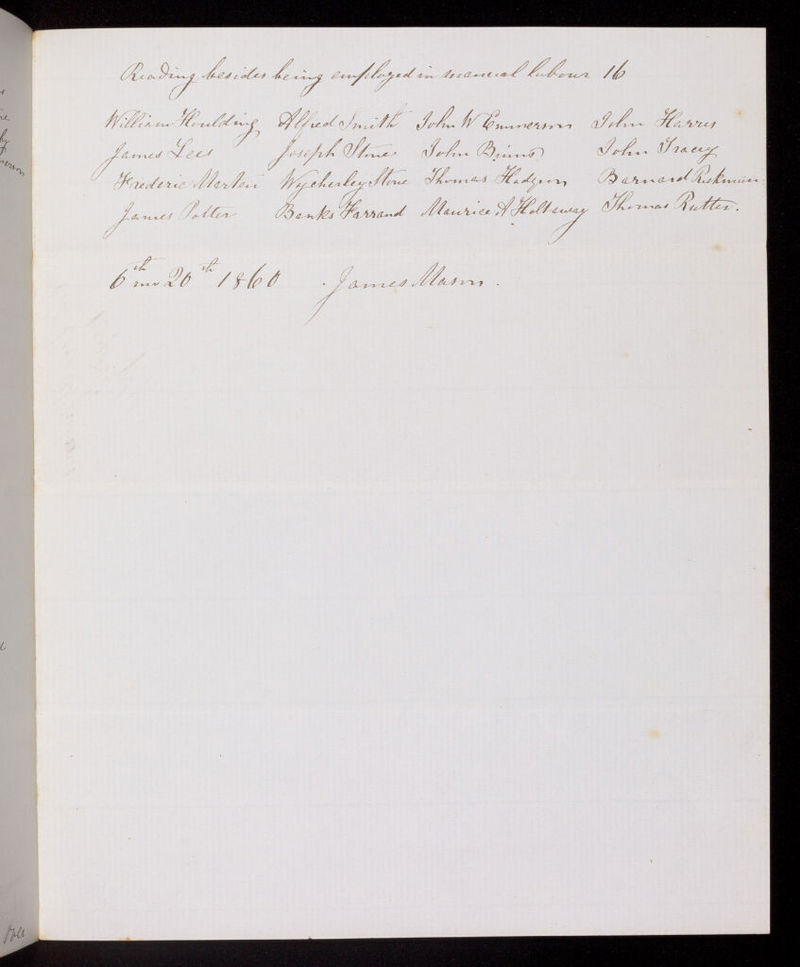 Reading besides being employed in manual labour 16
William Houlding Alfred Smith John W Emmerson John Harris
James Lees Joseph Stone John Binns John Tracey
Frederic Marten Wycherley Stone Thomas Hodgson Barnard Rickman
James Potter Banks Farrand Maurice A Holtaway Thomas Rutter.
6th mo 20th 1860 James Mason.